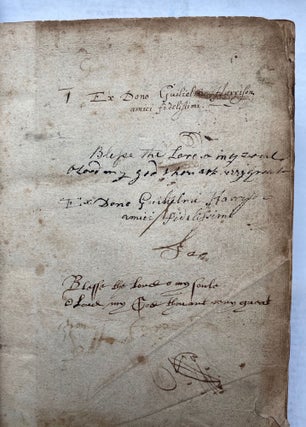 Ex Dono Guilielmi Harrison
amici fidelissimi.
Blesse the Lord o my soul
o Lord my god thou art very great
Ex Dono Guilielmi Harri
amici fidelissimi
Blesse the Lord o my soule
o Lord my God thou art very great